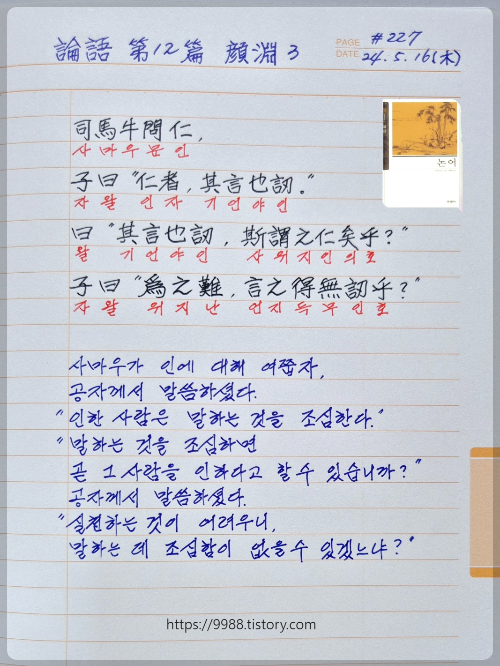 論語 第12篇 顔淵 3
PAGE #227
DATE 24. 5. 16(木)
논어
司馬牛問仁,
사 마 우 문 인
子曰 "仁者, 其言也訒."
자 왈 인 자 기 언 야 인
曰 "其言也訒, 斯謂之仁矣乎?"
왈 기 언 야 인 사 위 지 인 의 호
子曰 "爲之難, 言之得無訒乎?"
자 왈 위 지 난 언 지 득 무 인 호
사마우가 인에 대해 여쭙자,
공자께서 말씀하셨다.
"인한 사람은 말하는 것을 조심한다."
"말하는 것을 조심하면
곧 그 사람을 인하다고 할 수 있습니까?"
공자께서 말씀하셨다.
"실천하는 것이 어려우니,
말하는 데 조심함이 없을 수 있겠느냐?"
https://9988.tistory.com